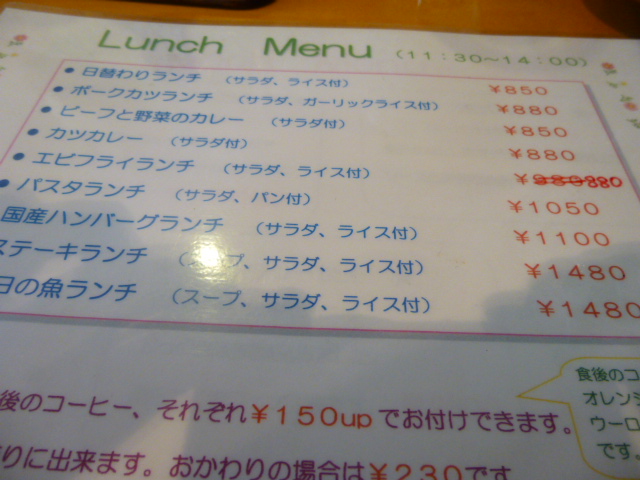 Lunch Menu (11:30~14:00)
• 日替わりランチ (サラダ、ライス付) ¥850
• ポークカツランチ (サラダ、ガーリックライス付) ¥880
• ビーフと野菜のカレー (サラダ付) ¥850
• カツカレー (サラダ付) ¥880
• エビフライランチ (サラダ、ライス付) ¥880
• パスタランチ (サラダ、パン付) ¥1050
国産ハンバーグランチ (サラダ、ライス付) ¥1100
ステーキランチ (スープ、サラダ、ライス付) ¥1480
日の魚ランチ (スープ、サラダ、ライス付) ¥1480
後のコーヒー、それぞれ¥150upでお付けできます。
りに出来ます。おかわりの場合は¥230です
食後のコ
オレンジ
ウーロ
です。